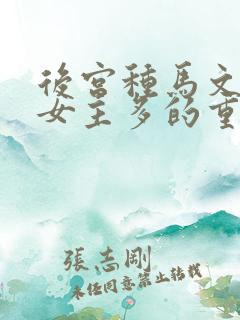 後宮種馬文
女主多的重
張志剛
未經同意禁止轉載